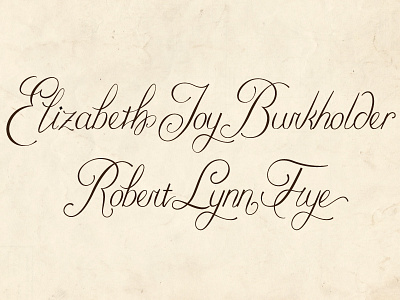 Elizabeth Joy Burkholder
Robert Lynn Frye